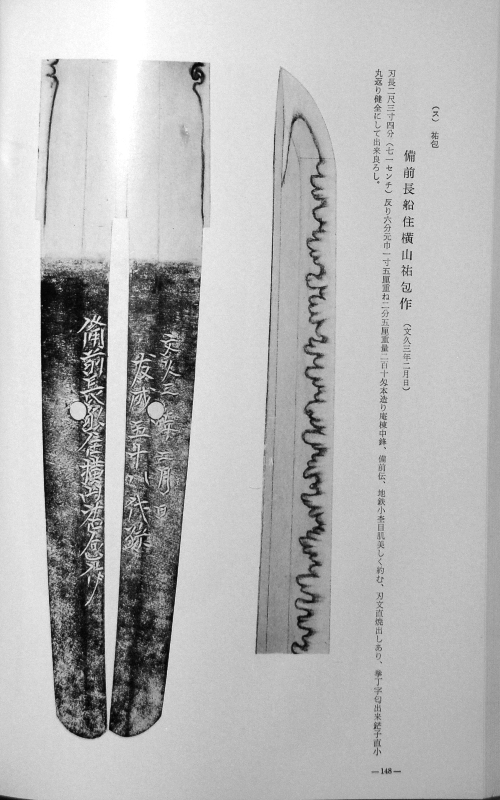 (ス) 祐包
備前長船住横山祐包作 (文久三年二月日)
刃長二尺三寸四分(七一センチ)反り六分元巾一寸五厘重ね二分五厘重量二百十匁本造り庵棟中鋒、備前伝、地鉄小杢目肌美しく約む、刃文直焼出しあり、拳丁字匂出来鋩子直小
丸返り健全にして出来良ろし。
文久三年二月日
友成五十八代孫
備前長船住横山祐包作
—148—